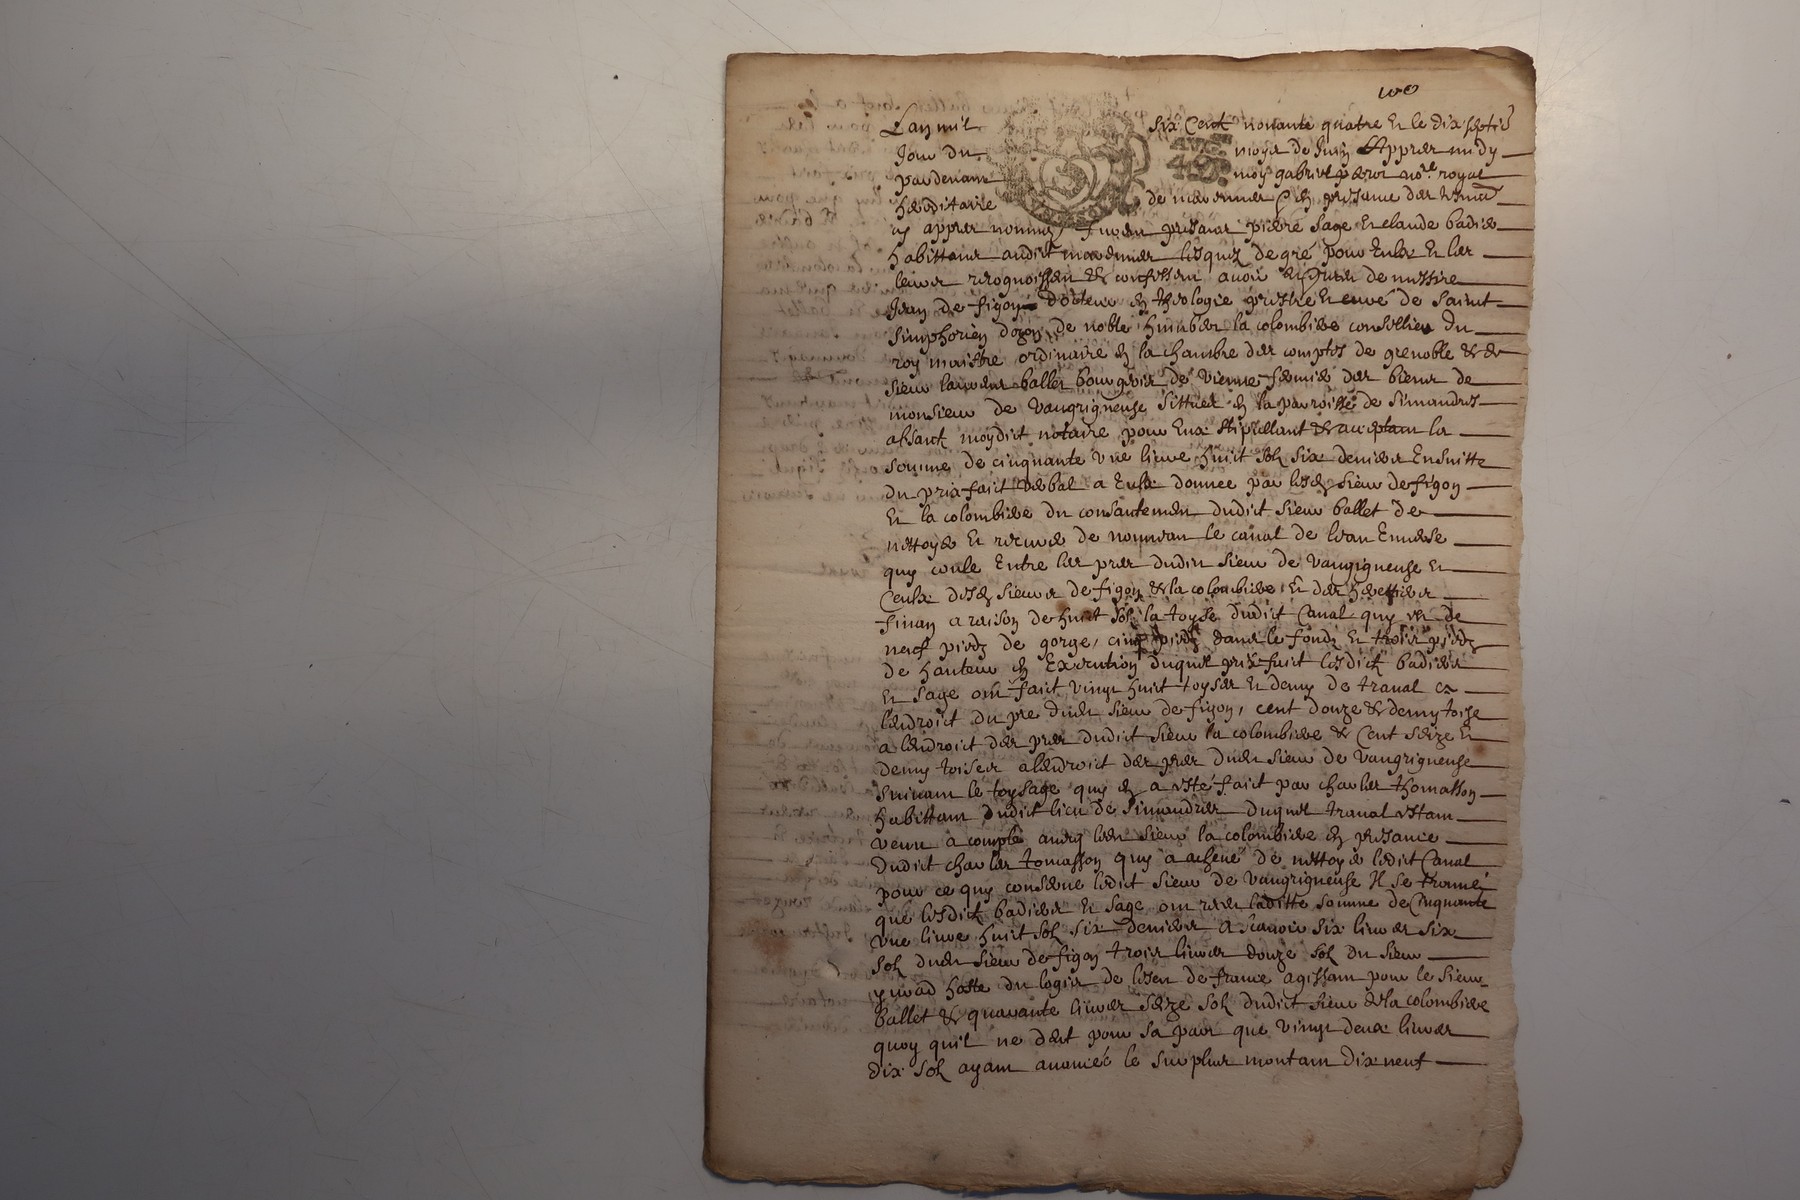 Lan mil six Cent nonante quatre et le dix septie
Jour du moys de Juin Appres midy
pardevant moy gabriel no.re royal
hereditaire de marennes et en presance des tesmoins
cy appres nommez furent presans pierre sage et claude badier
habittans audict marennes lesquels de gré pour eulx et les
leurs recognoissent et confessent avoir receu de messire
Jean de figon docteur en theologie prestre et curé de saint
simphorien dozon, de noble humbert la colombiere conseillier du
roy maistre ordinaire en la chambre des comptes de grenoble et de
sieur laurens ballet bourgeois de vienne fermier des biens de
monsieur de vaugrigneuse sittues en la parroisse de simandres
absant moydict notaire pour eux stipullant et acceptant la
somme de cinquante une livre huict sols six deniers ensuitte
du prix faict verbal a eulx donnee par lesd sieur de figon
et la colombiere du consantement dudict sieur ballet de
nettoyer et recurer de nouveau le canal de
quy coule entre les pres dudict sieur de vaugrigneuse et
ceulx desd sieurs de figon et la colombiere et des herettiers
finan a raison de huict sols la toyse dudict Canal quy est de
neuf pieds de gorge, cinq pieds dans le fonds et trois pieds
de hauteur en execution duquel prix faict lesdicts badier
et sage ont faict vingt huict toyses et demy de traval a
lendroict du pre dudict sieur de figon, cent douze et demy toise
a lendroict des pres dudict sieur la colombiere et cent seize et
demy toises a lendroict des pres dudict sieur de vaugrigneuse
suivant le toysage quy en a esté faict par charles thomasson
habittant dudict lieu de simandres duquel traval estant
venu a compte avecq ledict sieur la colombiere en presance
dudict charles tomasson quy a achevé de nettoye ledict Canal
pour ce quy conserne ledict sieur de vaugrigneuse Il se trouve
que lesdicts badier et sage ont receu laditte somme de Cinquante
une livre huict sols six deniers a scavoir six livres six
sols dudict sieur de figon trois livres douze sols du sieur
hoste du logis de lescu de france agissant pour le sieur
ballet et quarante livres seize sols dudict sieur de la colombiere
quoy quil ne doit pour sa part que vingt deux livres
dix sols ayant avancé le surplus montant dix neuf